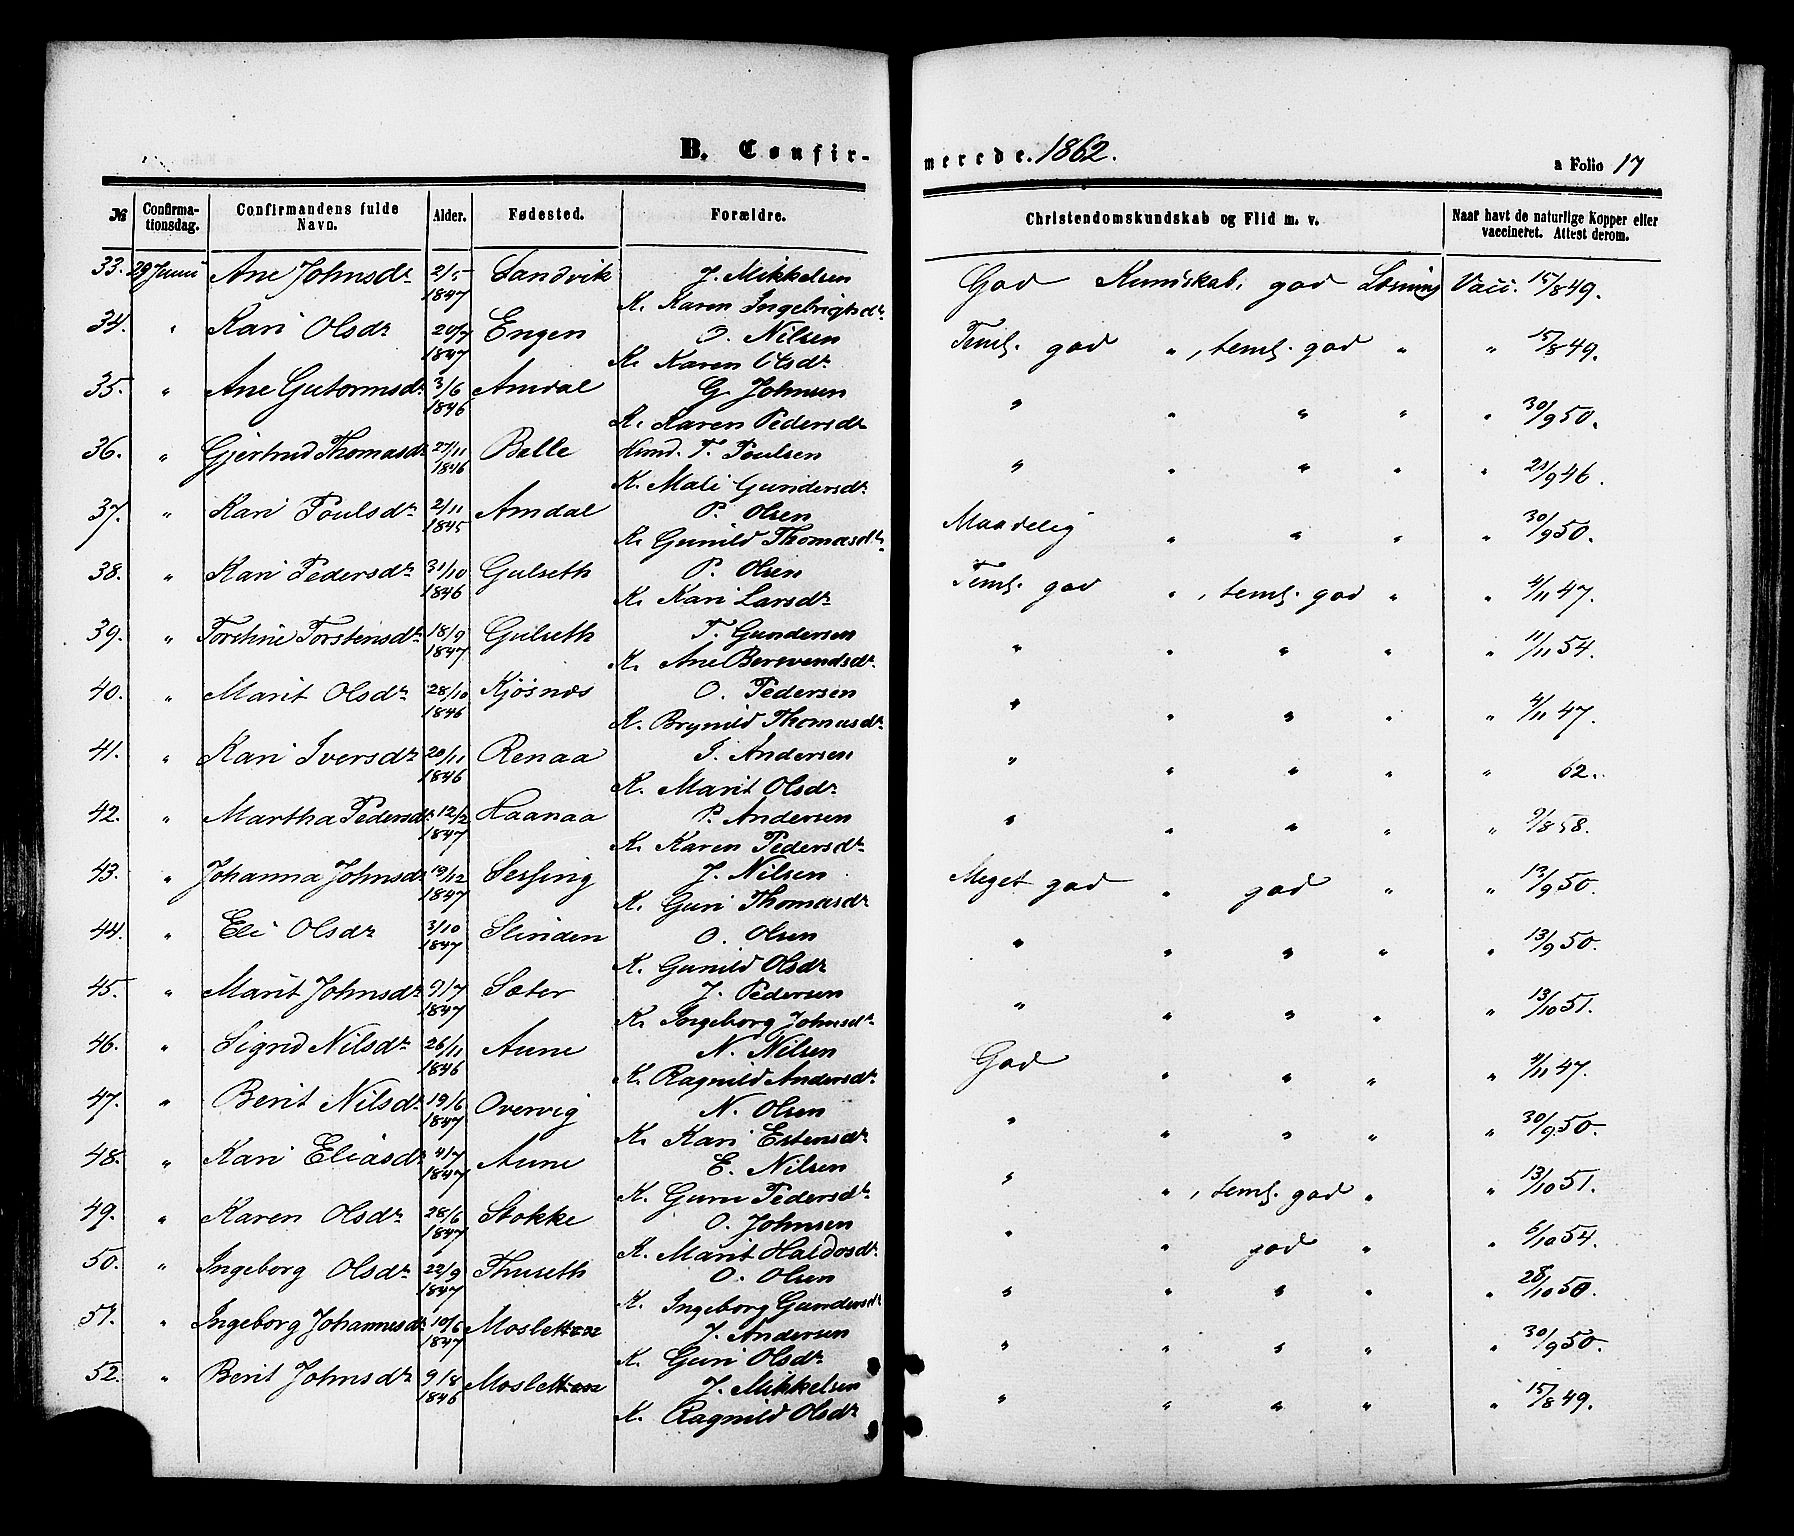 B. Confir-
merede. 1862.
a Folio 17
№ Confirma-tionsdag. Confirmandens fulde Navn. Alder. Fødested. Forældre. Christendomskundskab og Flid m. v. Naar havt de naturlige Kopper eller vaccineret. Attest derom.
33. 29 Juni Ane Johnsdr 2/5 1847 Sandvik J. Mikkelsen God Kundskab, god Læsning Vacc. 15/8 49.
K. Karen Ingebrigtsdr
34. " Kari Olsdr 20/7 1847 Engen O. Nilsen Teml. god " , teml. god " " 15/8 49.
K. Karen Olsdr
35. " Ane Gutormsdr 3/6 1846 Amdal G. Johnsen " " " " " 30/9 50.
K. Karen Pedersdr
36. " Gjertrud Thomasdr 27/11 1846 Balle T. Poulsen " " " " " /9 46.
K. Mali Gundersdr
37. " Kari Poulsdr 2/11 1845 Amdal P. Olsen Maadelig " " " " 30/9 50.
K. Gunild Thomasdr
38. " Kari Pedersdr 31/10 1846 Gulseth P. Olsen Teml. god " , teml. god " " 4/11 47.
K. Kari Larsdr
39. " Torstine Torstensdr 18/9 1847 Gulseth T. Gundersen " " " " " 11/11 54.
K. Ane Berevendsdr
40. " Marit Olsdr 28/10 1846 Kjøsnæs O. Pedersen " " " " " 4/11 47.
K. Brynild Thomasdr
41. " Kari Iversdr 20/11 1846 Renaa I. Andersen " " " " " 62.
K. Marit Olsdr
42. " Martha Pedersdr 12/2 1847 Haanaa P. Andersen " " " " " 9/8 58.
K. Karen Pedersdr
43. " Johanna Johnsdr 19/12 1847 Sessing J. Nilsen Meget god " god " " 13/9 50.
K. Guri Thomasdr
44. " Eli Olsdr 3/10 1847 Slinden O. Olsen " " " " " 13/9 50.
K. Gunild Olsdr
45. " Marit Johnsdr 9/7 1847 Sæter J. Pedersen " " " " " 13/10 51.
K. Ingeborg Johnsdr
46. " Sigrid Nilsdr 26/11 1846 Aune N. Nilsen God " " " " 4/11 47.
K. Ragnild Andersdr
47. " Berit Nilsdr 19/6 1847 Overvig N. Olsen " " " " " 30/9 50.
K. Kari Estensdr
48. " Kari Eliasdr 4/7 1847 Aune E. Nilsen " " , teml. god " " 13/10 51.
K. Guru Pedersdr
49. " Karen Olsdr 28/6 1847 Stokke O. Johnsen " " god " " 6/10 54.
K. Marit Haldosdr
50. " Ingeborg Olsdr 22/9 1847 Thuseth O. Olsen " " " " " 28/10 50.
K. Ingeborg Gundersdr
51. " Ingeborg Johannesdr 10/6 1847 J. Andersen " " " " " 30/9 50.
K. Guri Olsdr
52. " Berit Johnsdr 9/8 1846 J. Mikkelsen " " " " " 15/8 49.
K. Ragnild Olsdr